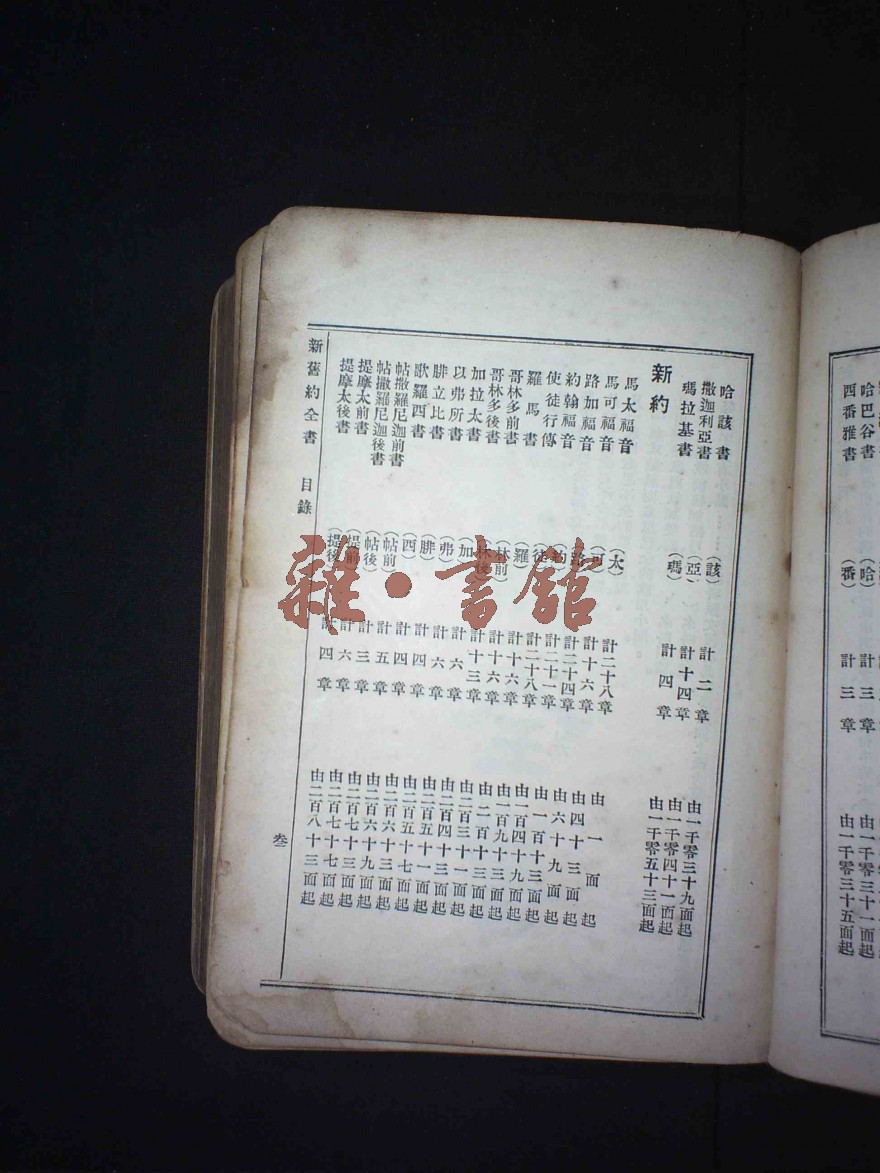 哈巴谷書 (哈) 計三章 由一千零三十一面起
西番雅書 (番) 計三章 由一千零三十五面起
哈該書 (該) 計二章 由一千零三十九面起
撒迦利亞書 (亞) 計十四章 由一千零四十一面起
瑪拉基書 (瑪) 計四章 由一千零五十三面起
新約
馬太福音 (太) 計二十八章 由一面起
馬可福音 (可) 計十六章 由四十三面起
路加福音 (路) 計二十四章 由六十九面起
約翰福音 (約) 計二十一章 由一百十三面起
使徒行傳 (徒) 計二十八章 由一百四十九面起
羅馬書 (羅) 計十六章 由一百九十三面起
哥林多前書 (林前) 計十六章 由二百十三面起
哥林多後書 (林後) 計十三章 由二百三十一面起
加拉太書 (加) 計六章 由二百四十三面起
以弗所書 (弗) 計六章 由二百五十一面起
腓立比書 (腓) 計四章 由二百五十七面起
歌羅西書 (西) 計四章 由二百六十三面起
帖撒羅尼迦前書 (帖前) 計五章 由二百六十九面起
帖撒羅尼迦後書 (帖後) 計三章 由二百七十三面起
提摩太前書 (提前) 計六章 由二百七十七面起
提摩太後書 (提後) 計四章 由二百八十三面起
新舊約全書 目錄 叁
雜·書館